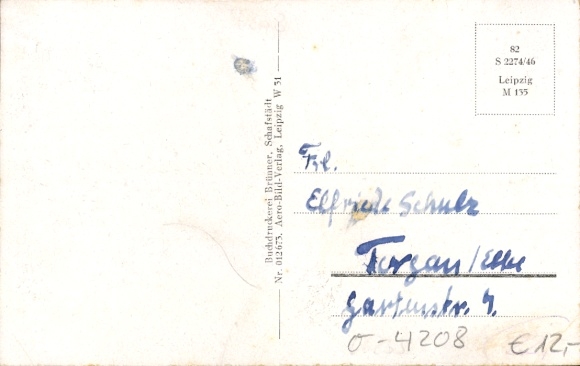 82
S 2274/46
Leipzig
M 135
Buchdruckerei Brünner, Schafstädt
Nr. 012675. Aero-Bild-Verlag, Leipzig W 31
Frl.
Elfriede Schulz
Torgau/Elbe
Gartenstr. 4.
O-4208
€ 12,-